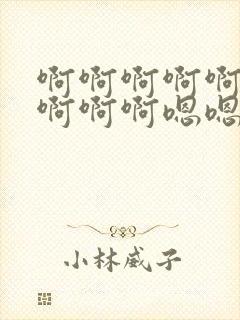 啊啊啊啊啊
啊啊啊嗯嗯
小林威子